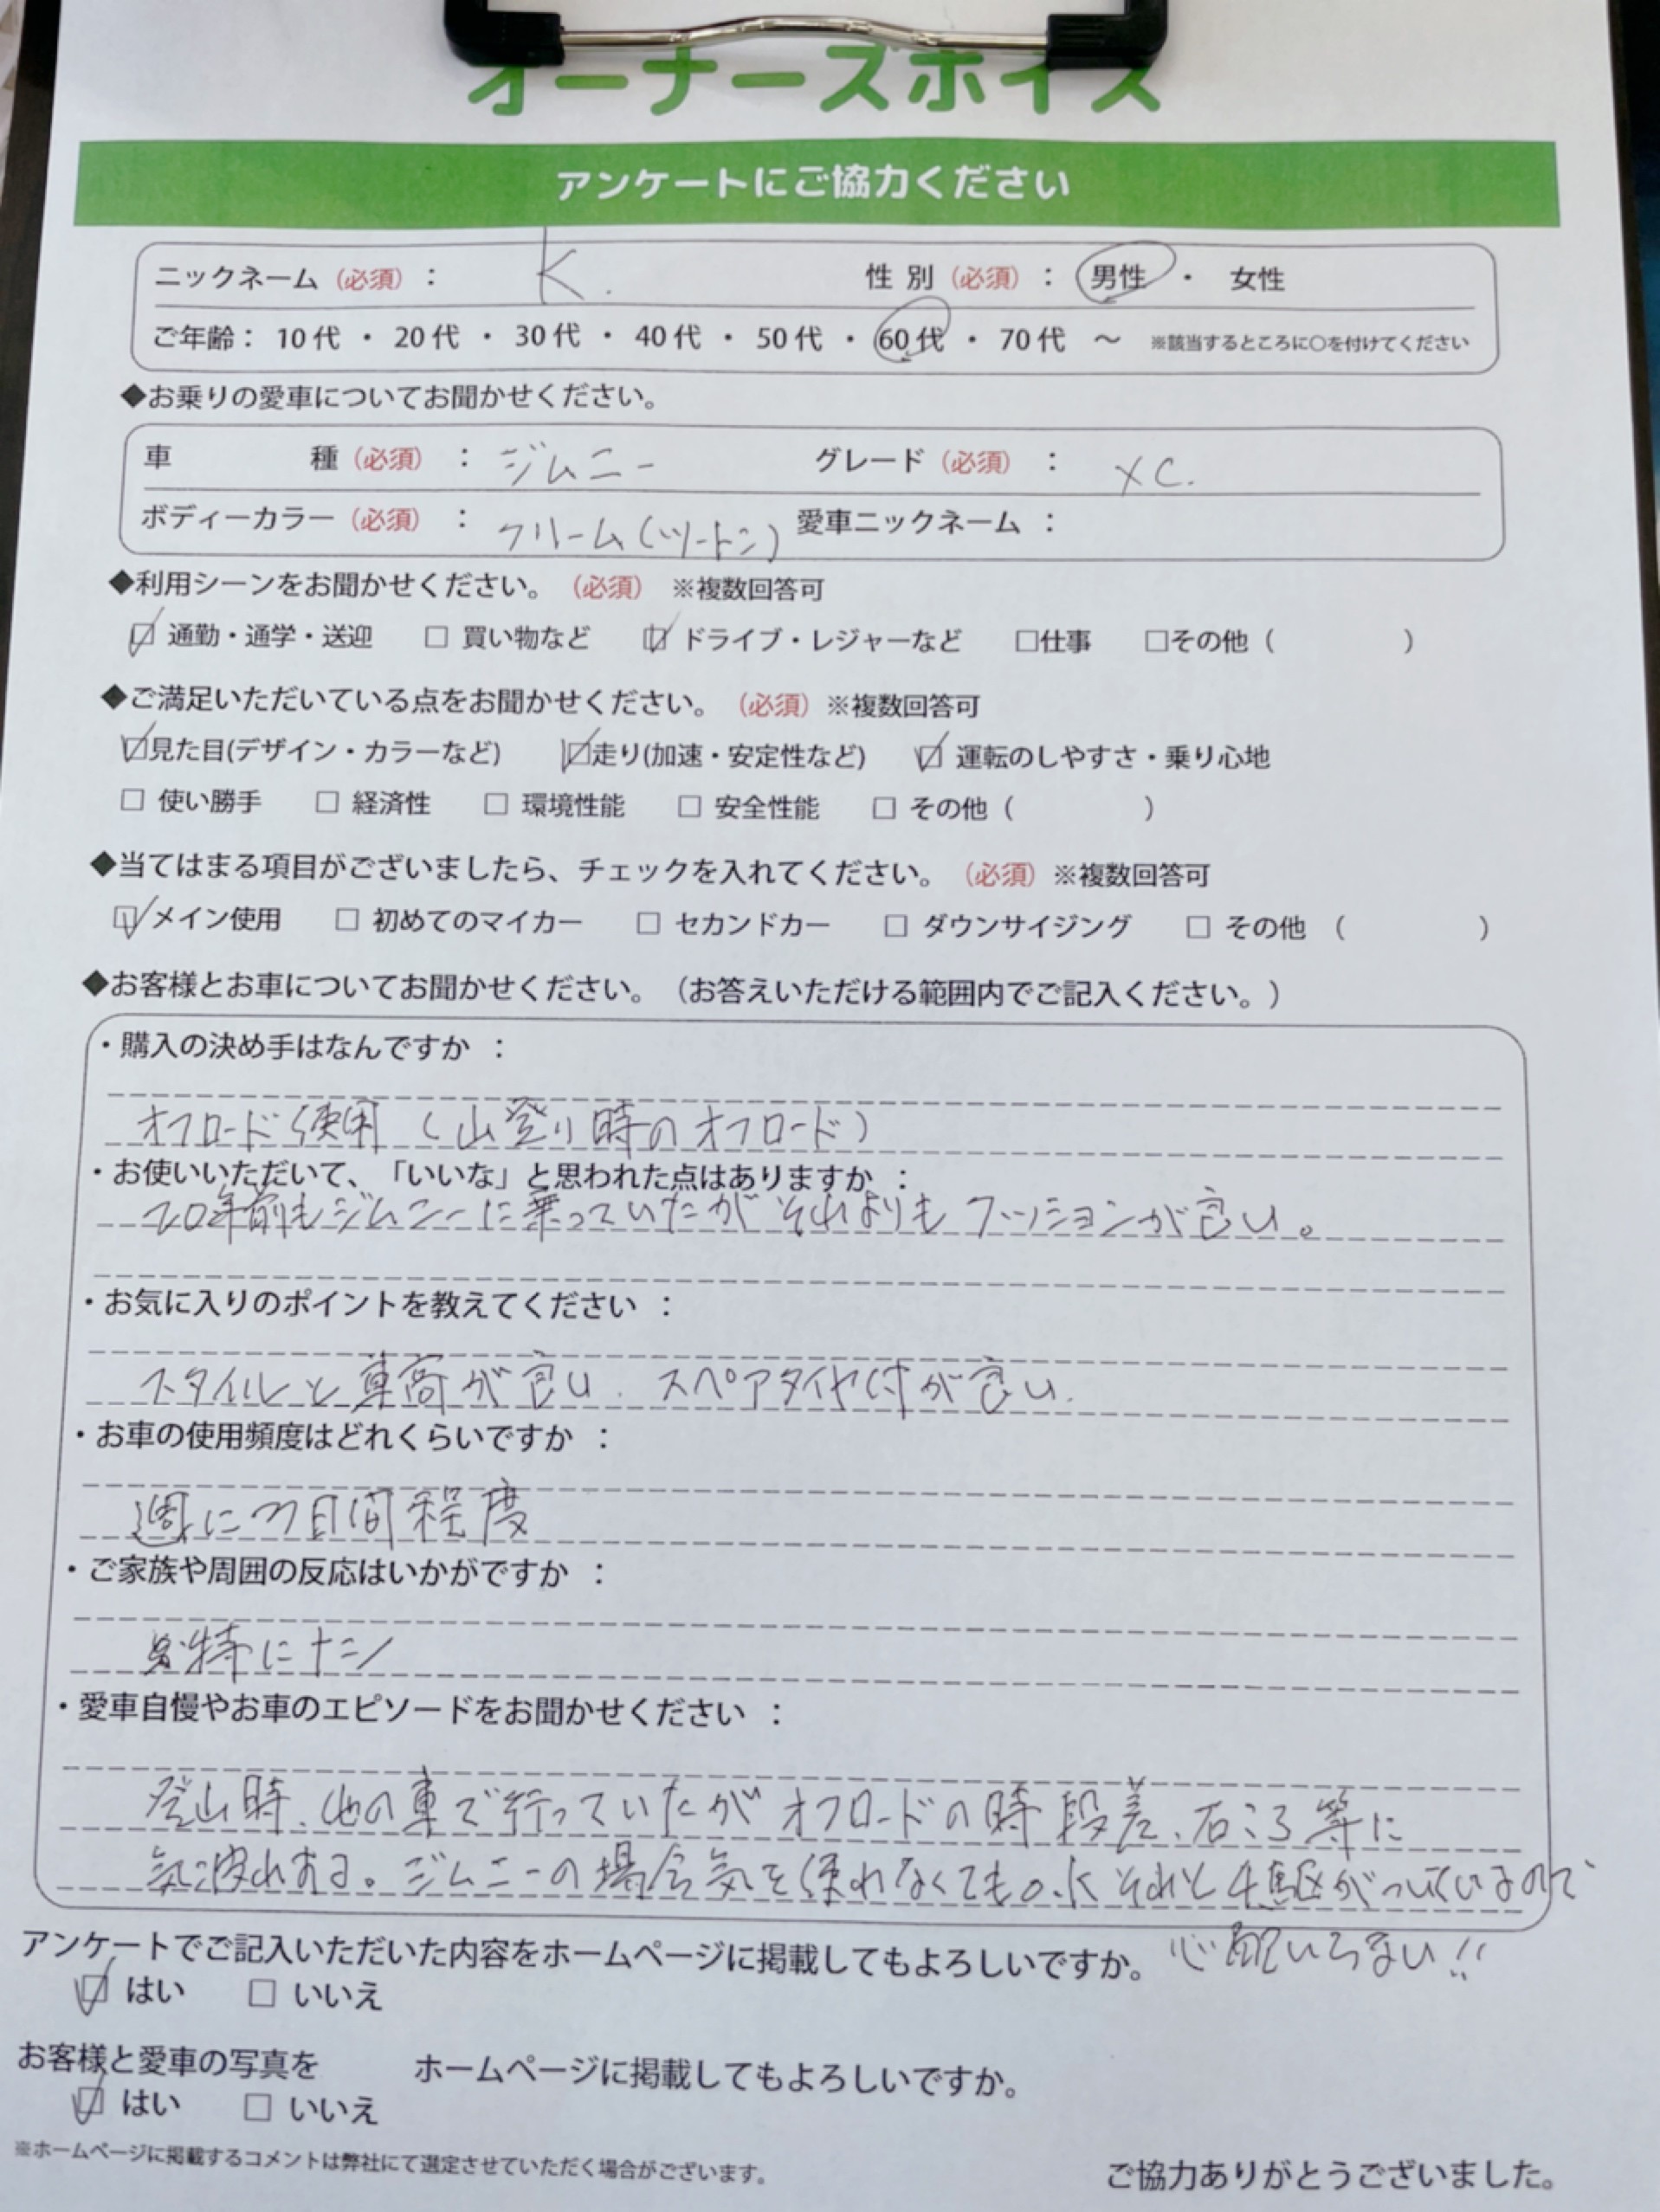 オーナーズボイス
アンケートにご協力ください
ニックネーム（必須）： K. 性別（必須）： 男性 ・ 女性
ご年齢： 10代 ・ 20代 ・ 30代 ・ 40代 ・ 50代 ・ 60代 ・ 70代 ～ ※該当するところに○を付けてください
◆お乗りの愛車についてお聞かせください。
車種（必須）： ジムニー グレード（必須）： XC.
ボディーカラー（必須）： クリーム（ツートン） 愛車ニックネーム：
◆利用シーンをお聞かせください。（必須） ※複数回答可
☑ 通勤・通学・送迎 □ 買い物など ☑ ドライブ・レジャーなど □仕事 □その他（ ）
◆ご満足いただいている点をお聞かせください。（必須）※複数回答可
☑見た目(デザイン・カラーなど) ☑走り(加速・安定性など) ☑ 運転のしやすさ・乗り心地
□ 使い勝手 □ 経済性 □ 環境性能 □ 安全性能 □ その他（ ）
◆当てはまる項目がございましたら、チェックを入れてください。（必須）※複数回答可
☑メイン使用 □ 初めてのマイカー □ セカンドカー □ ダウンサイジング □ その他 （ ）
◆お客様とお車についてお聞かせください。（お答えいただける範囲内でご記入ください。）
・購入の決め手はなんですか ：
オフロード使用 （山登り時のオフロード）
・お使いいただいて、「いいな」と思われた点はありますか ：
20年前もジムニーに乗っていたがそれよりもクッションが良い。
・お気に入りのポイントを教えてください ：
スタイルと車高が良い. スペアタイヤ付が良い.
・お車の使用頻度はどれくらいですか ：
週に 日間程度
・ご家族や周囲の反応はいかがですか ：
特にナシ
・愛車自慢やお車のエピソードをお聞かせください ：
登山時、他の車で行っていたがオフロードの時段差、石ころ等に
気疲れする。ジムニーの場合気を使わなくてもO.K それと4駆がついているので
心配いらない!!
アンケートでご記入いただいた内容をホームページに掲載してもよろしいですか。
☑ はい □ いいえ
お客様と愛車の写真を ホームページに掲載してもよろしいですか。
☑ はい □ いいえ
※ホームページに掲載するコメントは弊社にて選定させていただく場合がございます。
ご協力ありがとうございました。